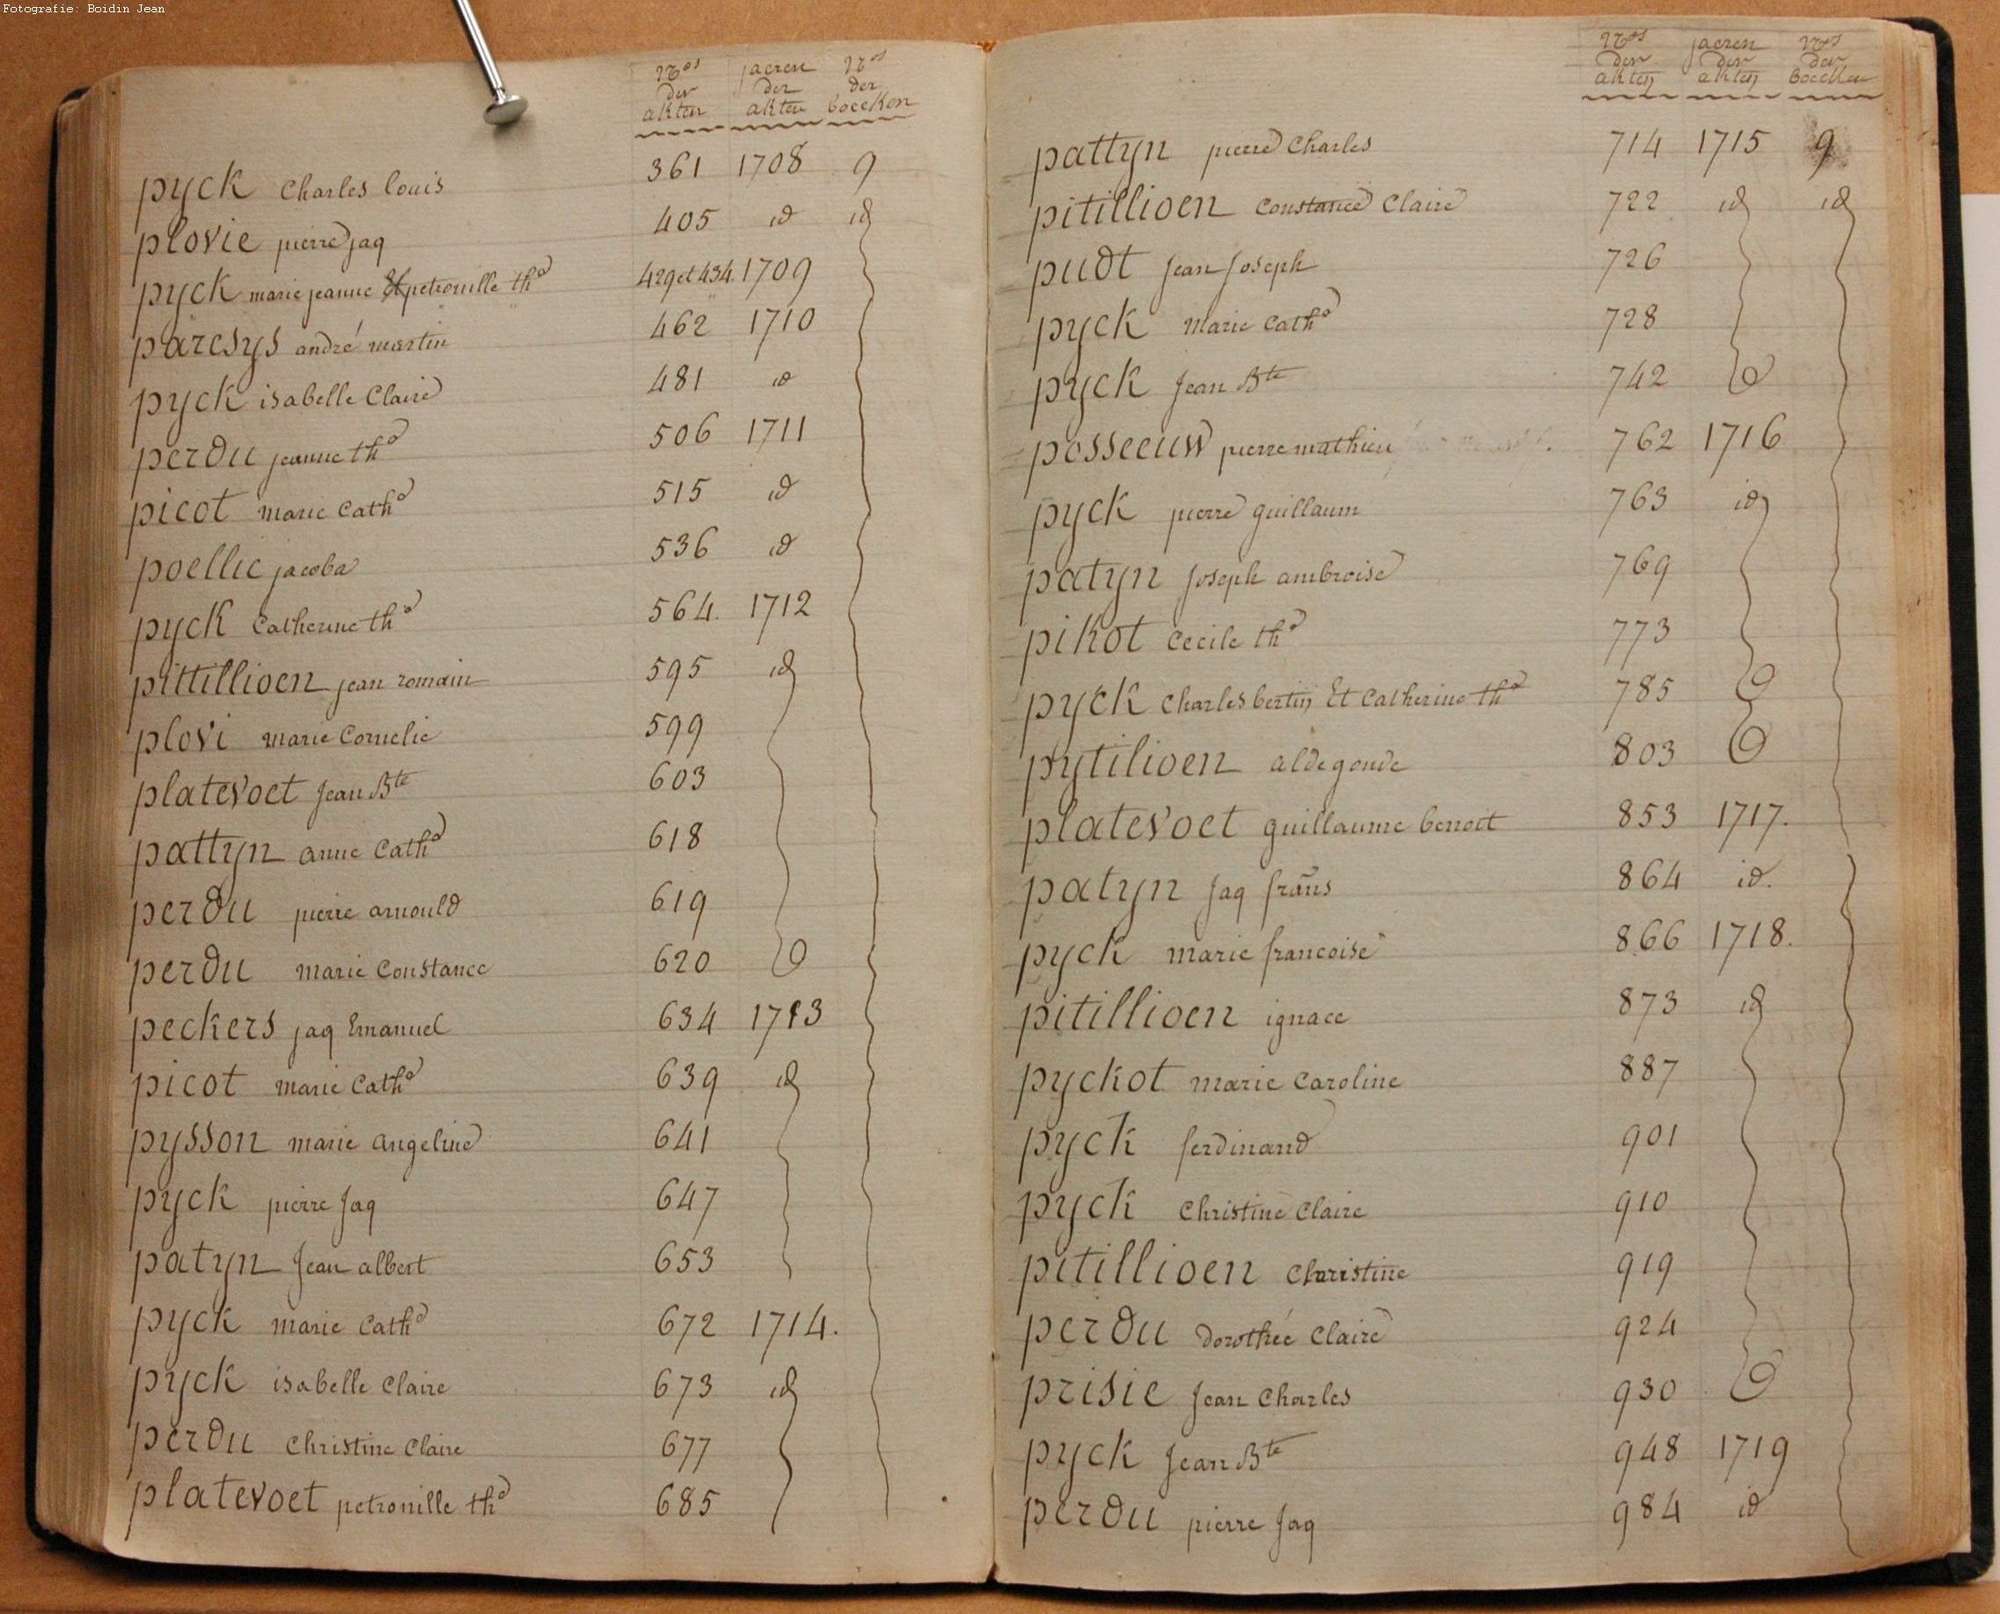 Fotografie: Boidin Jean
Nos der akten jaeren der akten Nos der boecken
pyck Charles louis 361 1708 9
plovie pierre jaq 405 id id
pyck marie jeanne Et petronille the 429 et 434. 1709
paresys andré martin 462 1710
pyck isabelle Claire 481 id
perdu jeanne the 506 1711
picot marie Cathe 515 id
poellie jacoba 536 id
pyck Catherine the 564. 1712
pittillioen jean romain 595 id
plovi marie Cornelie 599
platevoet Jean Bte 603
pattyn anne Cathe 618
perdu pierre arnould 619
perdu marie Constance 620
peckers jaq Emanuel 634 1713
picot marie Cathe 639 id
pysson marie angeline 641
pyck pierre Jaq 647
patyn Jean albert 653
pyck marie Cathe 672 1714.
pyck isabelle Claire 673 id
perdu Christine Claire 677
platevoet petronille the 685
Nos der akten jaeren der akten Nos der boecken
pattyn pierre Charles 714 1715 9
pitillioen Constance Claire 722 id id
pudt Jean Joseph 726
pyck marie Cathe 728
pyck Jean Bte 742
posseeuw pierre mathieu 762 1716
pyck pierre guillaum 763 id
patyn Joseph ambroise 769
pikot Cecile the 773
pyck Charles bertin Et Catherine the 785
pytilioen aldegonde 803
platevoet guillaume benoit 853 1717.
patyn Jaq frans 864 id.
pyck marie francoise 866 1718.
pitillioen ignace 873 id
pyckot marie Caroline 887
pyck ferdinand 901
pyck Christine Claire 910
pitillioen Christine 919
perdu Dorothée Claire 924
prisie Jean Charles 930
pyck Jean Bte 948 1719
perdu pierre Jaq 984 id